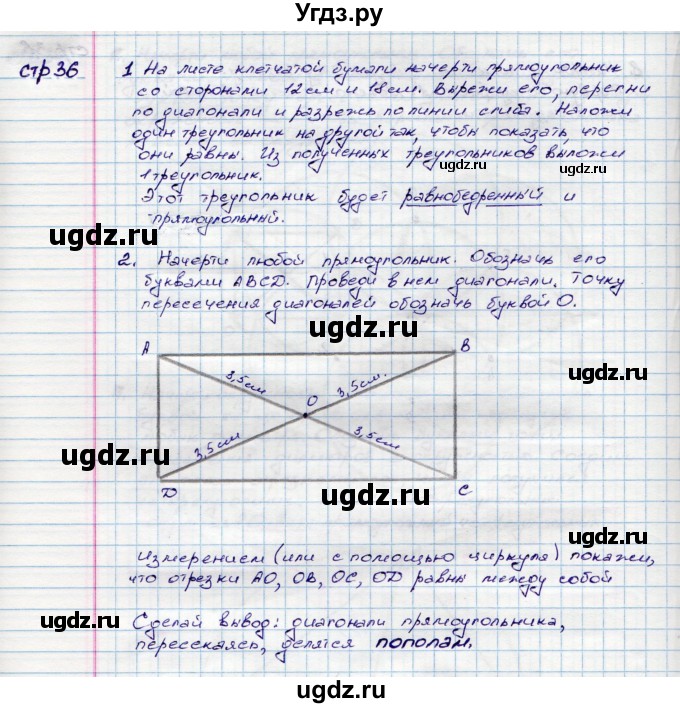 Угдз.ру
стр 36
1 На листе клетчатой бумаги начерти прямоугольник
со сторонами 12 см и 18 см. Вырежи его, перегни
по диагонали и разрежь по линии сгиба. Наложи
один треугольник на другой так, чтобы показать, что
они равны. Из полученных треугольников выложи
1 треугольник.
Этот треугольник будет равнобедренный и
прямоугольный.
ugdz.ru ugdz.ru
ugdz.ru
2. Начерти любой прямоугольник. Обозначь его
буквами ABCD. Проведи в нем диагонали. Точку
пересечения диагоналей обозначь буквой О.
ugdz.ru
ugdz.ru
A B
3,5 см 3,5 см.
O
3,5 см 3,5 см
ugdz.ru
ugdz.ru
D C
Измерением (или с помощью циркуля) покажи,
что отрезки AO, OB, OC, OD равны между собой
ugdz.ru ugdz.ru
Сделай вывод: диагонали прямоугольника,
пересекаясь, делятся пополам.
ugdz.ru